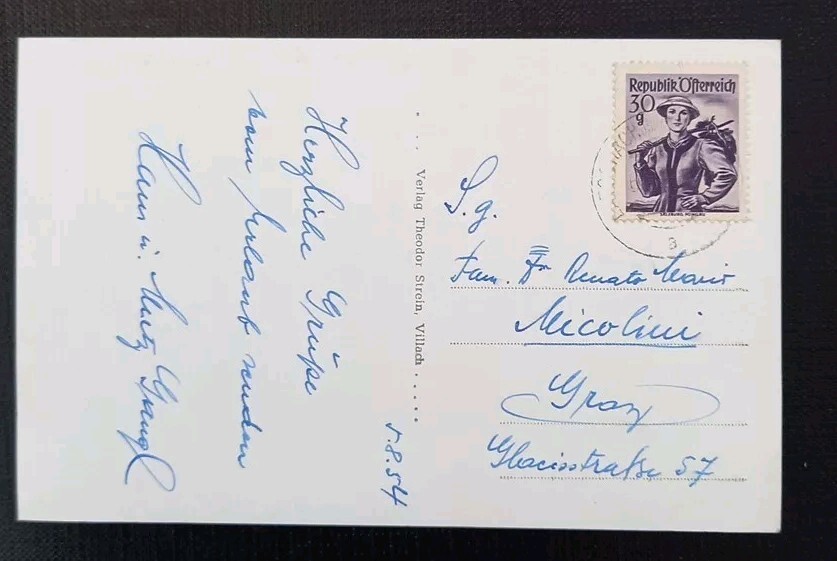 Herzliche Grüße
vom Urlaub senden
Hans u. Mutz
5.8.54
Verlag Theodor Strein, Villach
Republik Österreich
30
g
SALZBURG, PONGAU
3
S.g.
Fam. Renato Mario
Nicolini
Graz
Glacisstraße 57